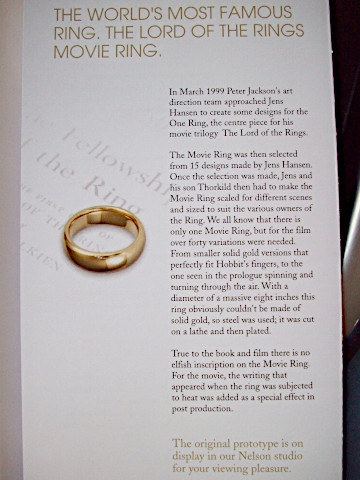 THE WORLD'S MOST FAMOUS
RING. THE LORD OF THE RINGS
MOVIE RING.
In March 1999 Peter Jackson's art
direction team approached Jens
Hansen to create some designs for the
One Ring, the centre piece for his
movie trilogy The Lord of the Rings.
The Movie Ring was then selected
from 15 designs made by Jens Hansen.
Once the selection was made, Jens and
his son Thorkild then had to make the
Movie Ring scaled for different scenes
and sized to suit the various owners of
the Ring. We all know that there is
only one Movie Ring, but for the film
over forty variations were needed.
From smaller solid gold versions that
perfectly fit Hobbit's fingers, to the
one seen in the prologue spinning and
turning through the air. With a
diameter of a massive eight inches this
ring obviously couldn't be made of
solid gold, so steel was used; it was cut
on a lathe and then plated.
True to the book and film there is no
elfish inscription on the Movie Ring.
For the movie, the writing that
appeared when the ring was subjected
to heat was added as a special effect in
post production.
The original prototype is on
display in our Nelson studio
for your viewing pleasure.
Fellowship
the Ring
OF